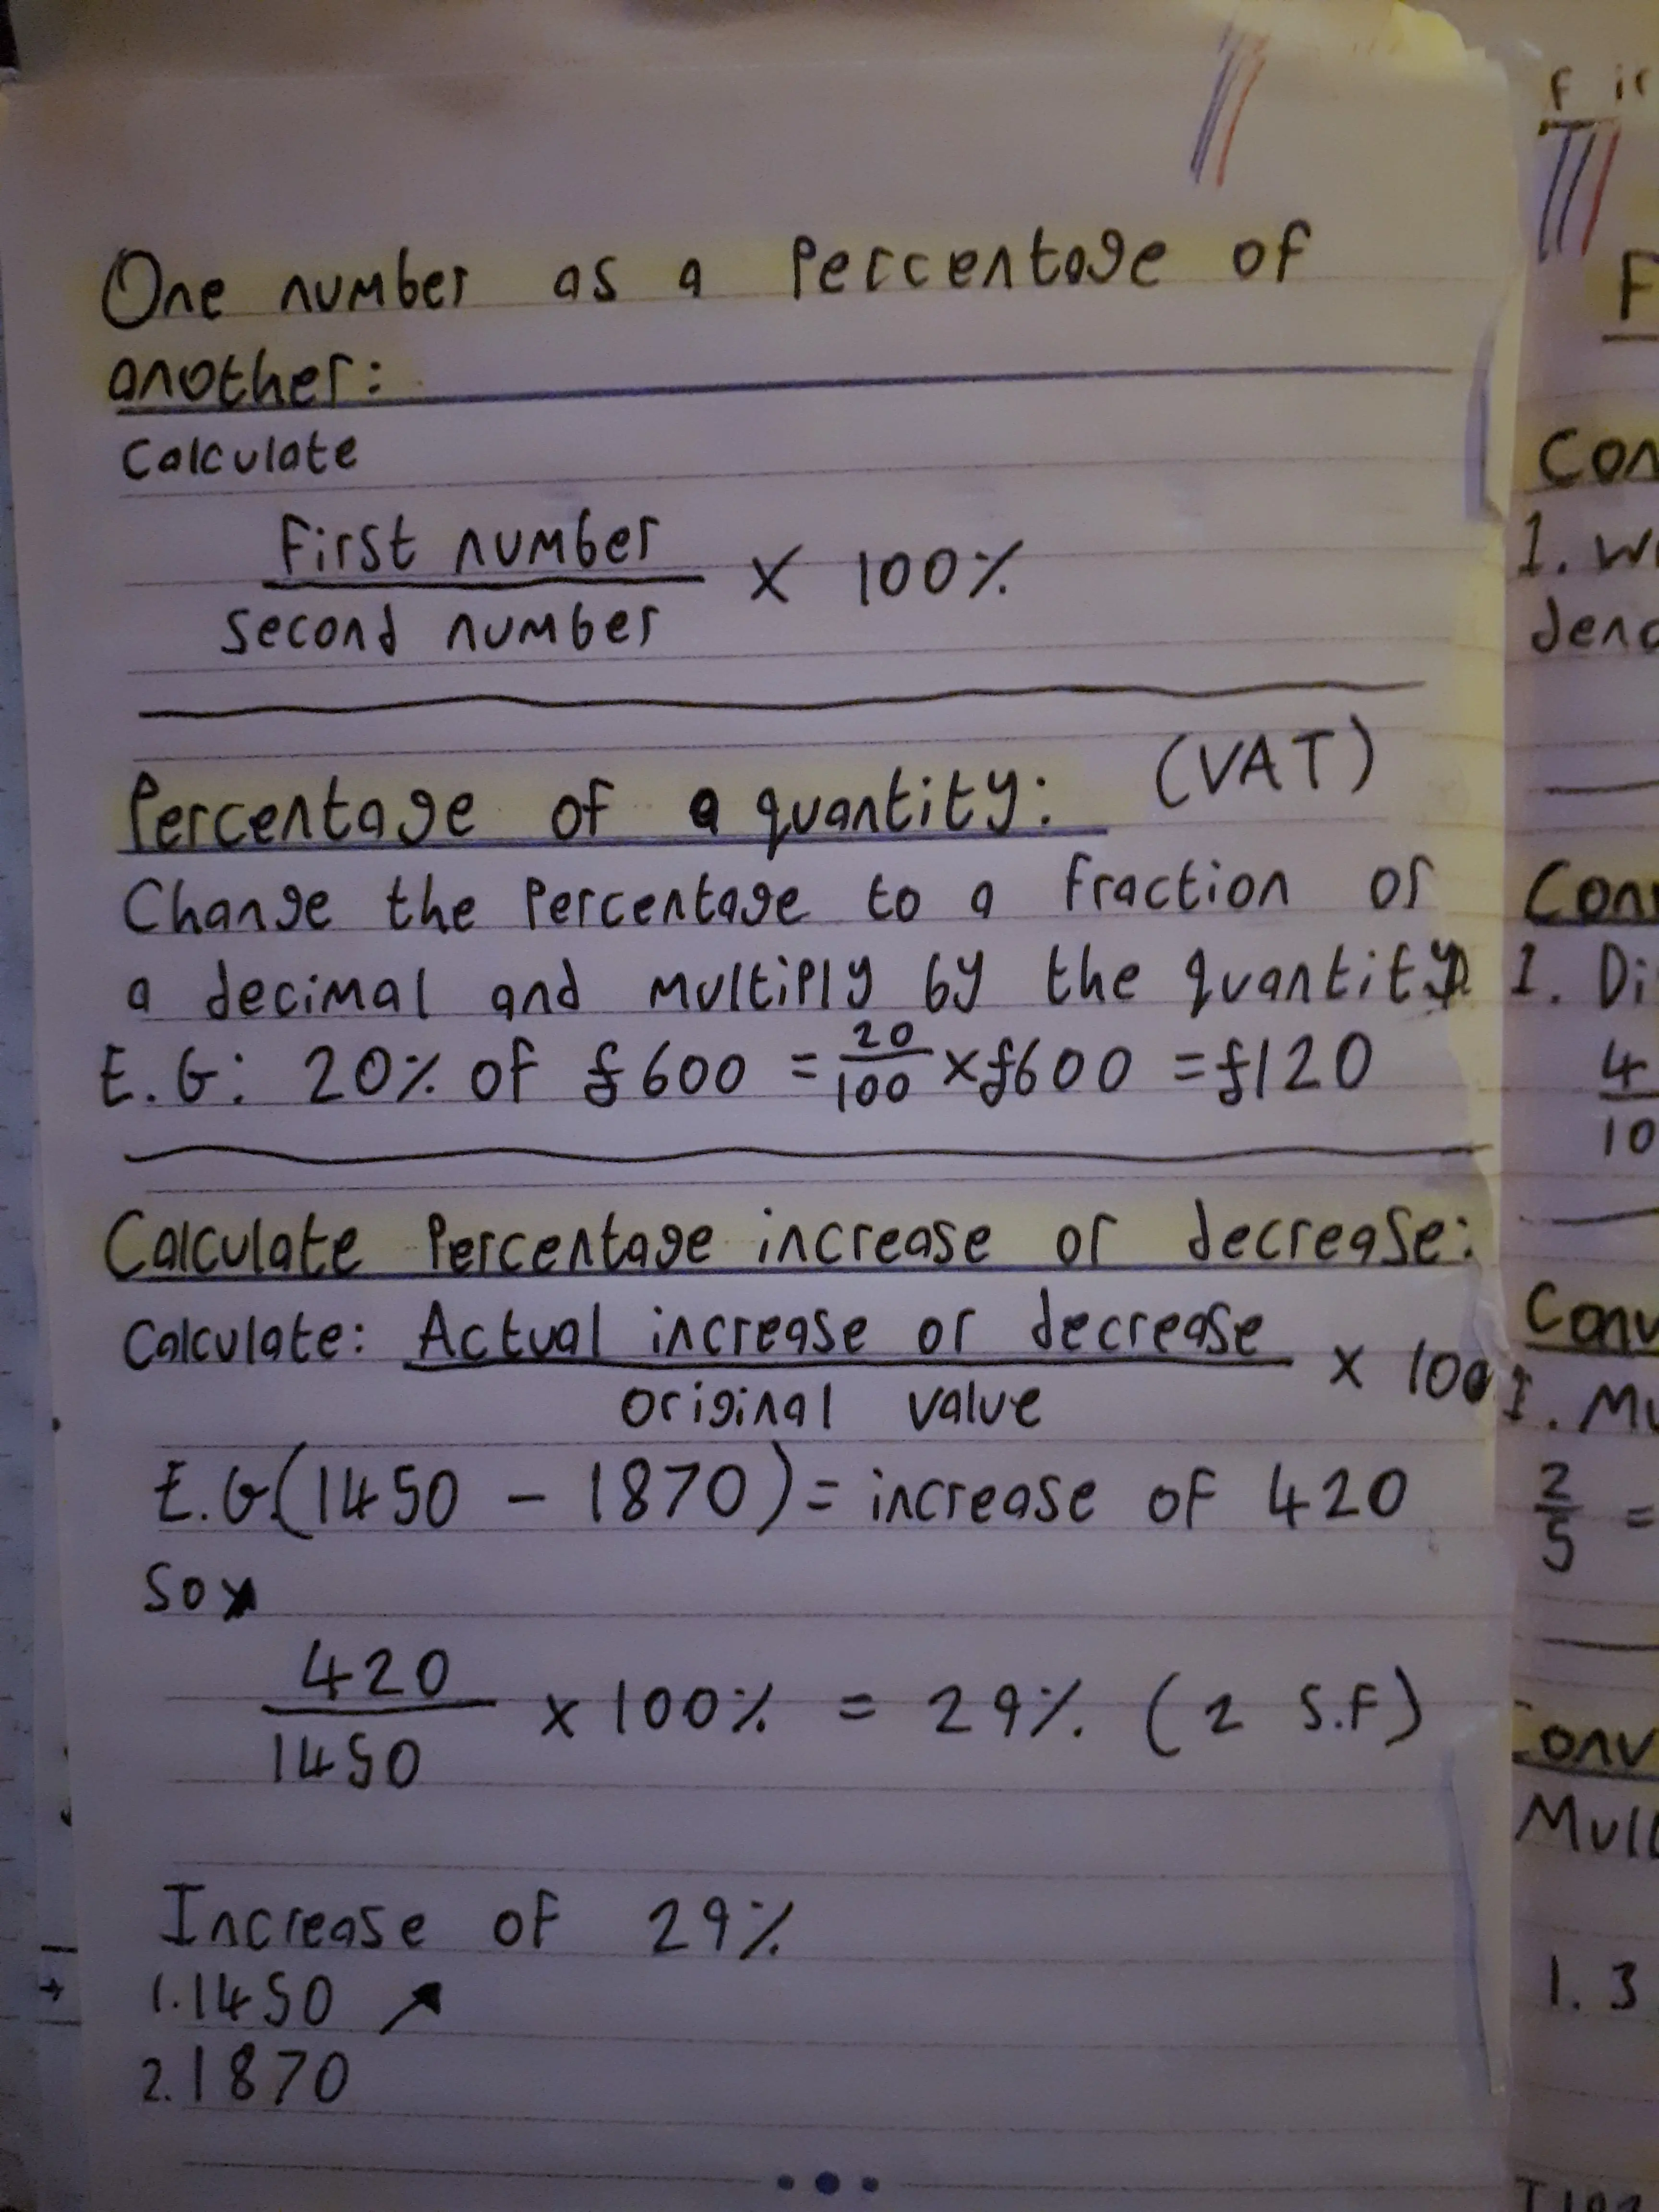 One number as a Percentage of
another:
Calculate
First number
second number
× 100%
Percentage of a quantity: (VAT)
Change the Percentage to a fraction or
a decimal and multiply by the quantity
E.G: 20% of £600 = 20/100 × £600 = £120
Calculate Percentage increase or decrease:
Calculate: Actual increase or decrease
original value
× 100
E.G (1450 - 1870) = increase of 420
So
420
1450
× 100% = 29% (2 S.F)
Increase of 29%
1. 1450 ↗
2. 1870
F
Con
1. W
deno
1. Di
4
10
Conv
1. Mu
2/5 =
Conv
Mul
1. 3